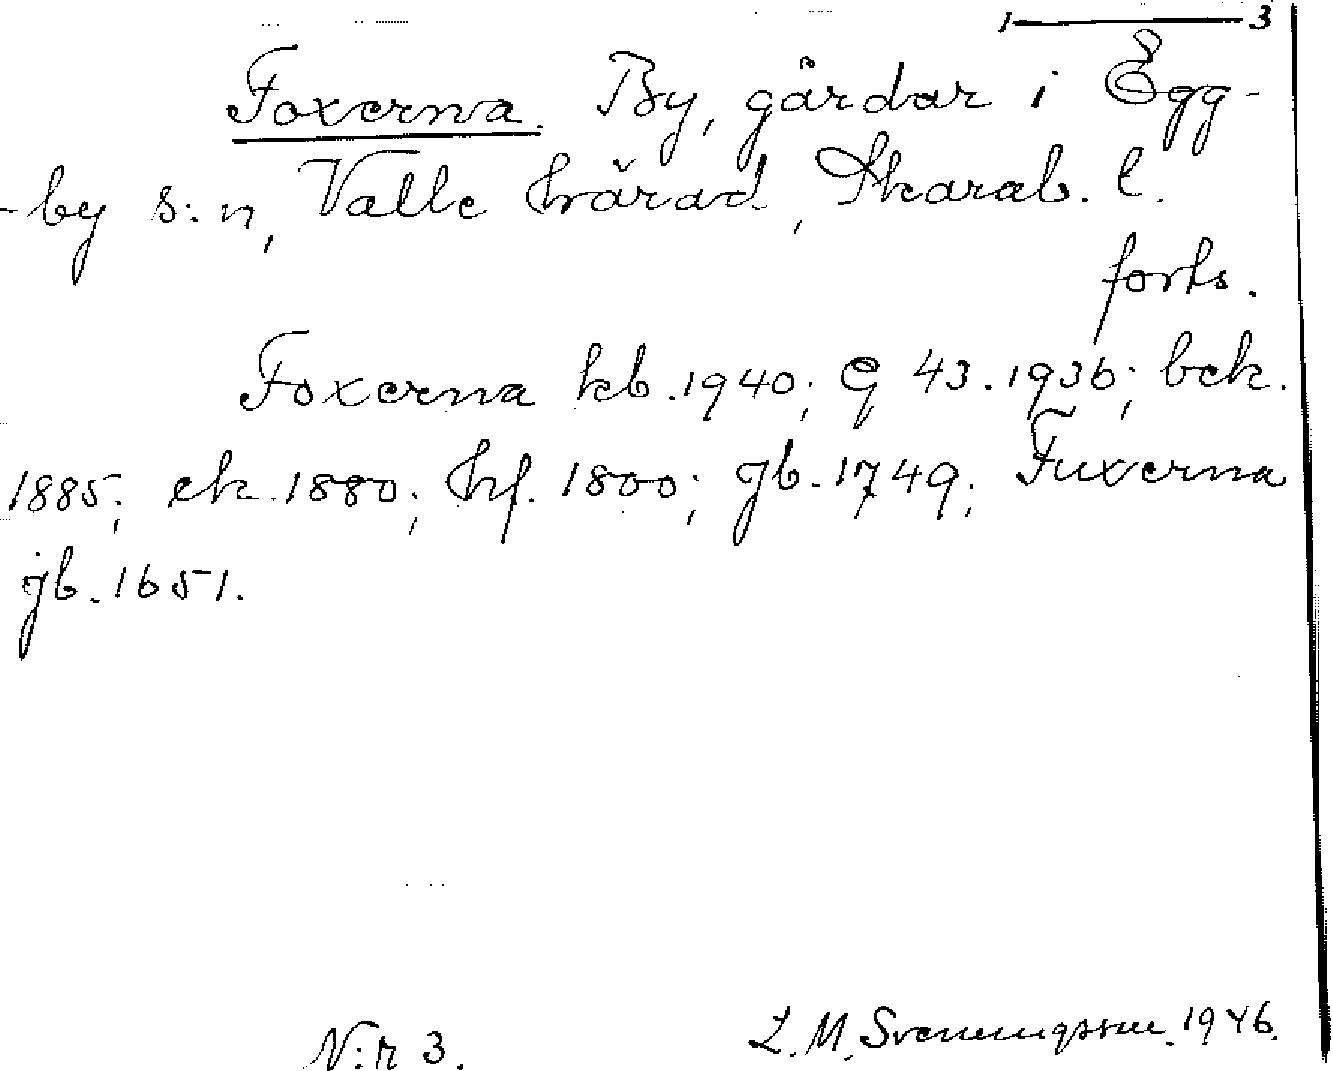 1 — 3
Foxerna. By, gårdar i Egg-
-by s:n, Valle härad, Skarab. l.
forts.
Foxerna kb. 1940; G 43. 1936; bek.
1885; ek. 1880; hf. 1800; jb. 1749; Fuxerna
jb. 1651.
N:r 3.
L. M. Svenungsson. 1946.